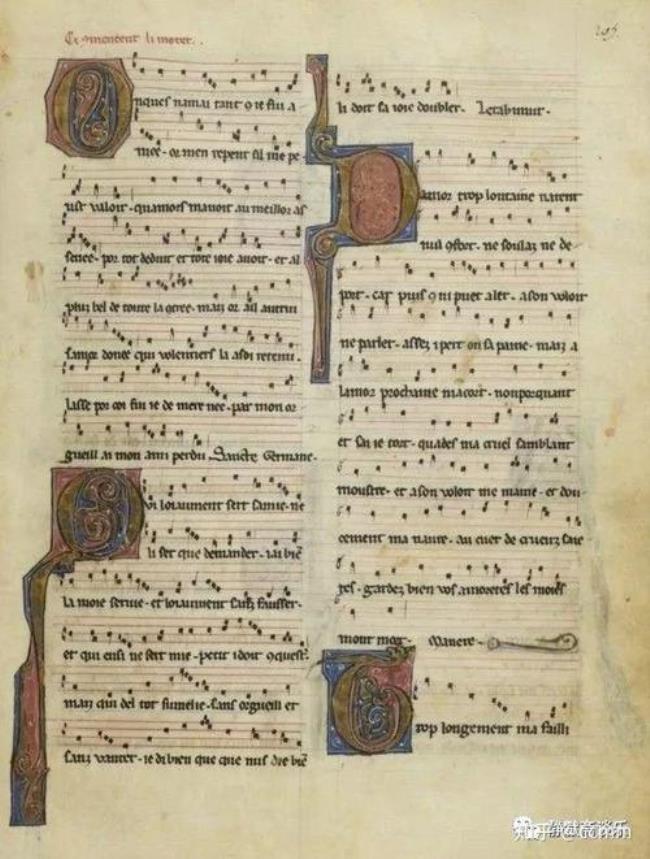 Ci comencent li motet.
205.
Onques namai tant q ie fui a
mee. or men repent sil me pe
ust valoir. quamors mavoit au meillor as
senee. por tot deduit et tote ioie avoir. et al
plus bel de toute la
samor donee qui volentiers la
lasse por coi fui ie de mere nee. par mon or
gueill ai mon ami perdu. Sancte Germane.
Qui loiaument sert samie. ne
li set que demander. iai bie
la moie servie. et loiaument sanz fausser.
et qui ensi ne sert mie. petit i doit
mais qui del tot sumelie. sans orgueill et
sanz vanter. ie di bien que que nus die bie
li doit sa ioie doubler. Letabitur.
amor trop lontaine
ne solaz ne de
port. car puis q ni puet aler. a son voloir
ne parler. assez i pert on sa paine. mais a
lamor prochaine macort. nonporquant
et sai ie tort. quades ma cruel samblant
moustre. et a son voloir me maine. et dou
cement ma navre. au cuer de
res. gardez bien vos amoretes les moies
mont mort. Manere.
Trop longement ma failli
知乎